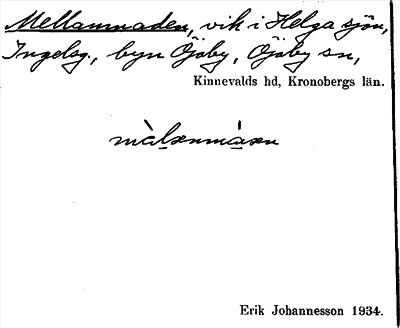 Mellanmaden, vik i Helga sjön,
Ingelsg., byn Öjaby, Öjaby sn,
Kinnevalds hd, Kronobergs län.
Erik Johannesson 1934.